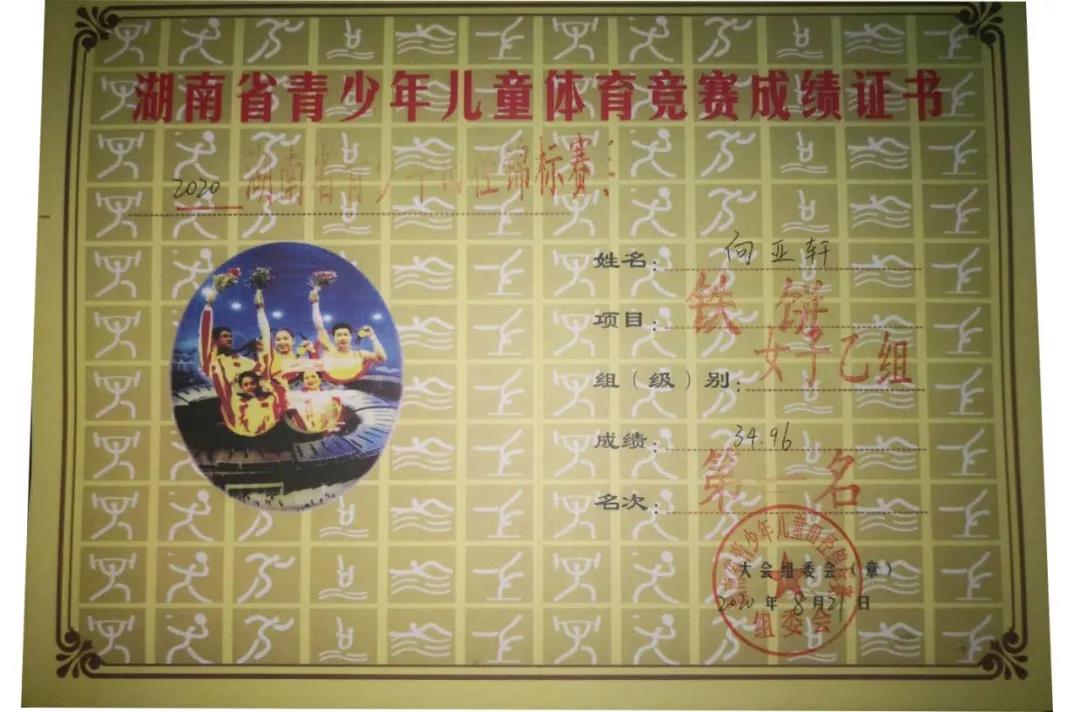 湖南省青少年儿童体育竞赛成绩证书
2020 湖南省青少年田径锦标赛
姓名：向亚轩
项目：铁饼
组（级）别：女子乙组
成绩：34.96
名次：第一名
大会组委会（章）
2020年8月21日
组委会